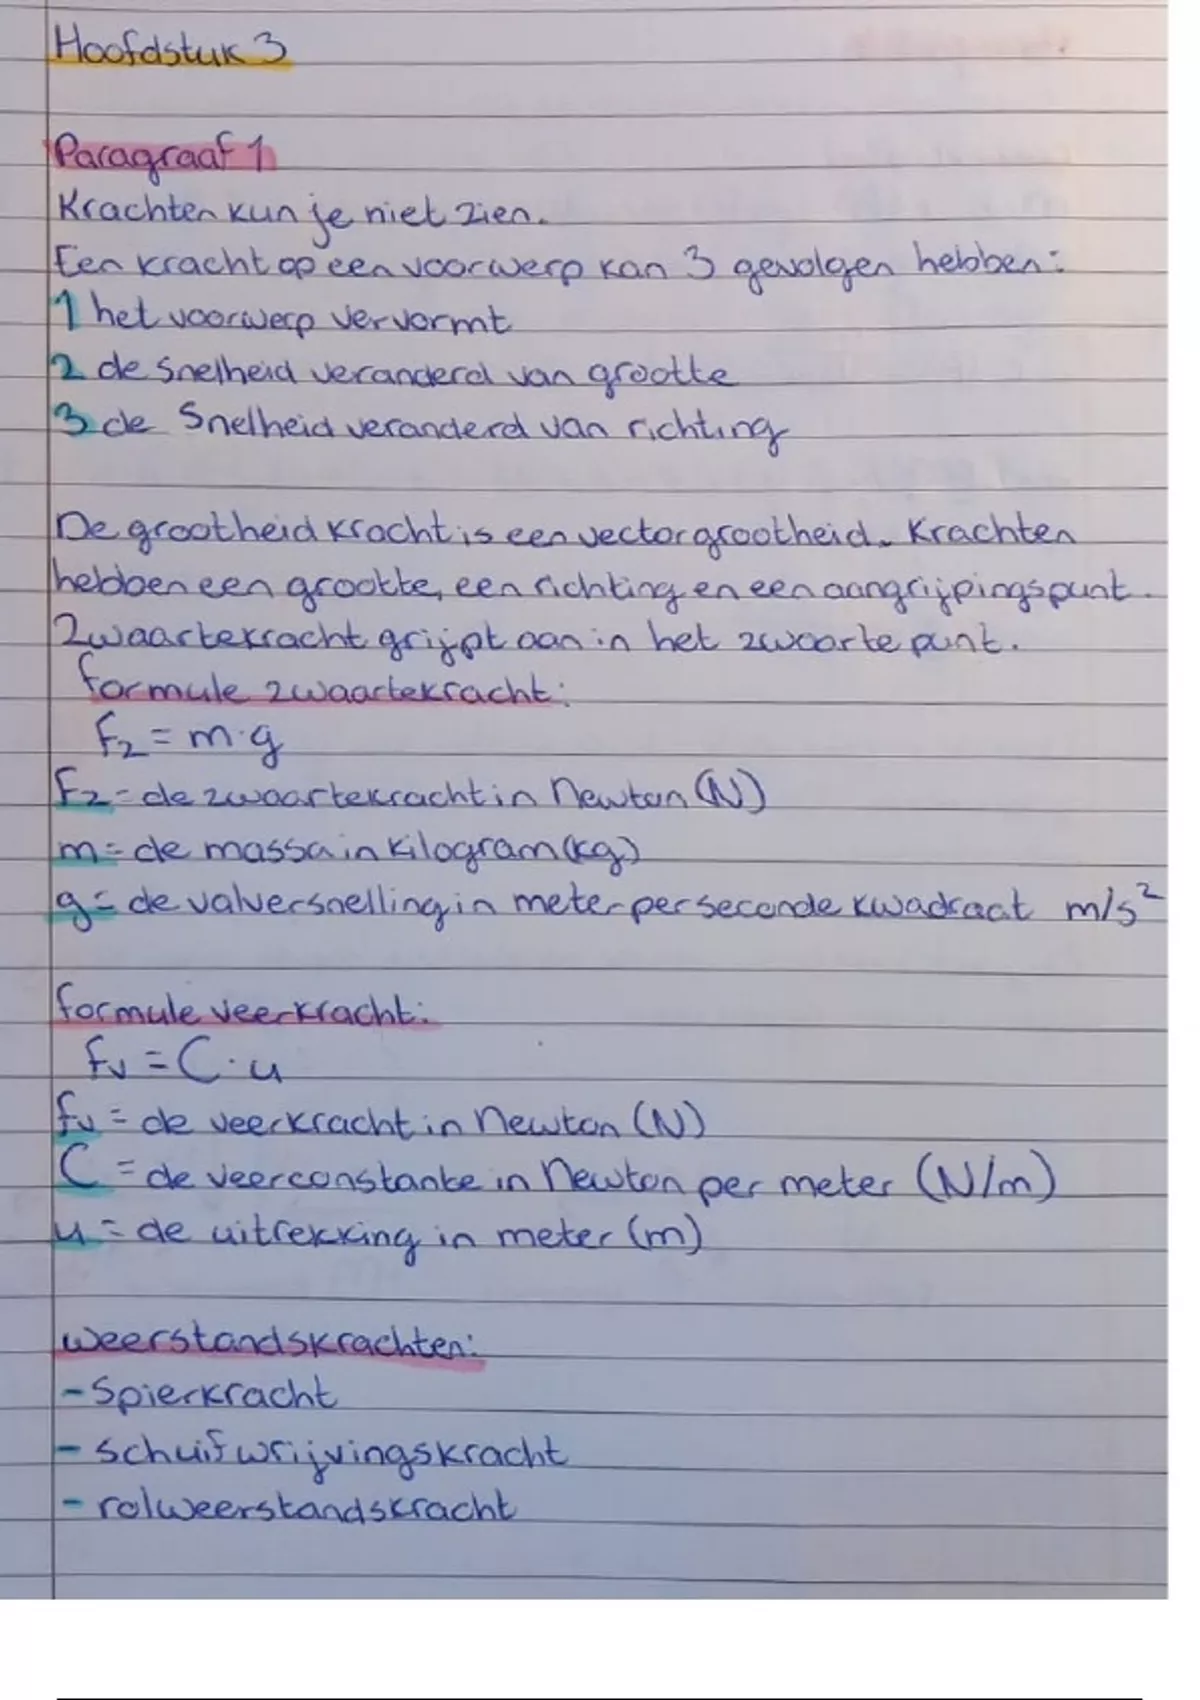 Hoofdstuk 3
Paragraaf 1
Krachten kun je niet zien.
Een kracht op een voorwerp kan 3 gevolgen hebben:
1 het voorwerp vervormt
2 de snelheid veranderd van grootte
3 de snelheid veranderd van richting
De grootheid kracht is een vectorgrootheid. Krachten
hebben een grootte, een richting en een aangrijpingspunt.
Zwaartekracht grijpt aan in het zwaartepunt.
formule zwaartekracht:
Fz = m·g
Fz = de zwaartekracht in Newton (N)
m = de massa in kilogram (kg)
g = de valversnelling in meter per seconde kwadraat m/s²
formule veerkracht:
Fv = C·u
Fv = de veerkracht in Newton (N)
C = de veerconstante in Newton per meter (N/m)
u = de uitrekking in meter (m)
weerstandskrachten:
- Spierkracht
- schuifwrijvingskracht
- rolweerstandskracht